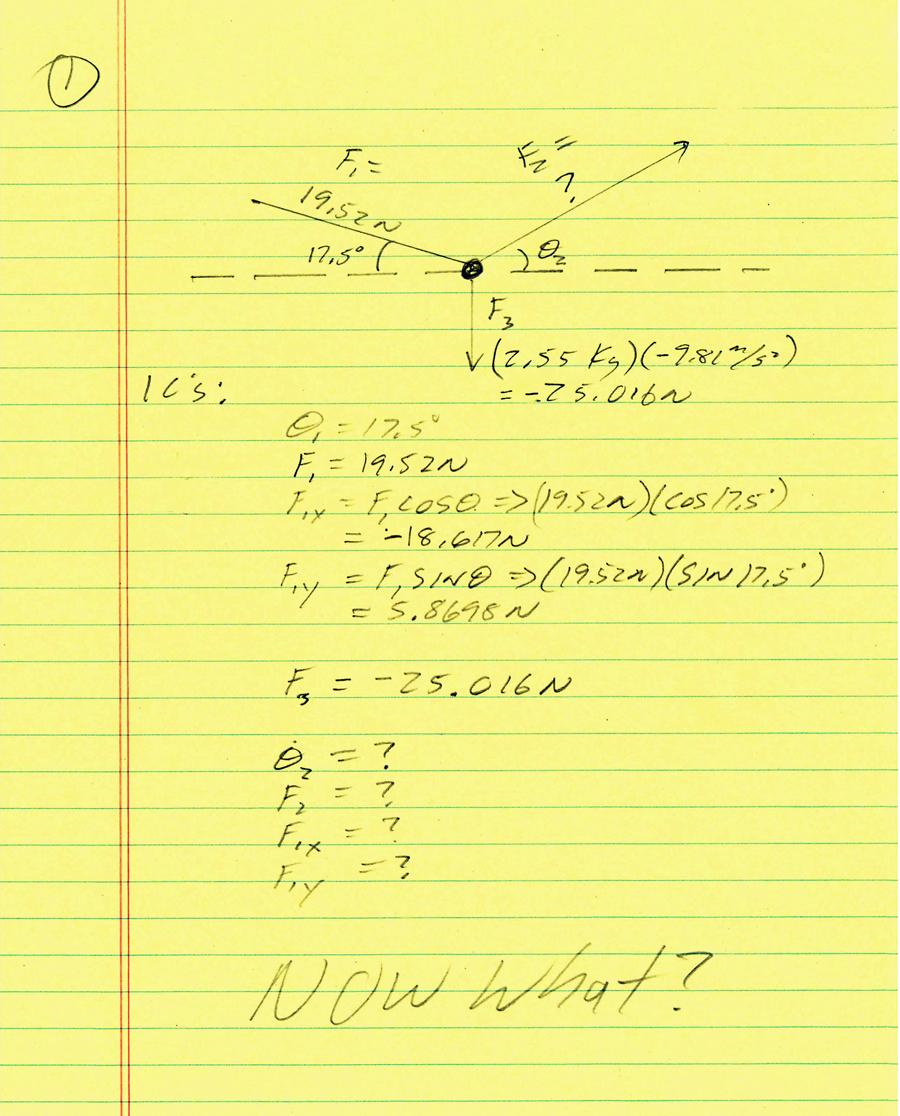 1
F₁ =
19.52N
F₂ =
?
17.5°
θ₂
F₃
(2.55 Kg)(-9.81 m/s²)
= -25.016N
IC's:
θ₁ = 17.5°
F₁ = 19.52N
F₁ₓ = F₁ COSθ => (19.52N)(COS 17.5°)
= -18.617N
F₁y = F₁ SINθ => (19.52N)(SIN 17.5°)
= 5.8698N
F₃ = -25.016N
θ₂ = ?
F₂ = ?
F₁ₓ = ?
F₁y = ?
NOW What?